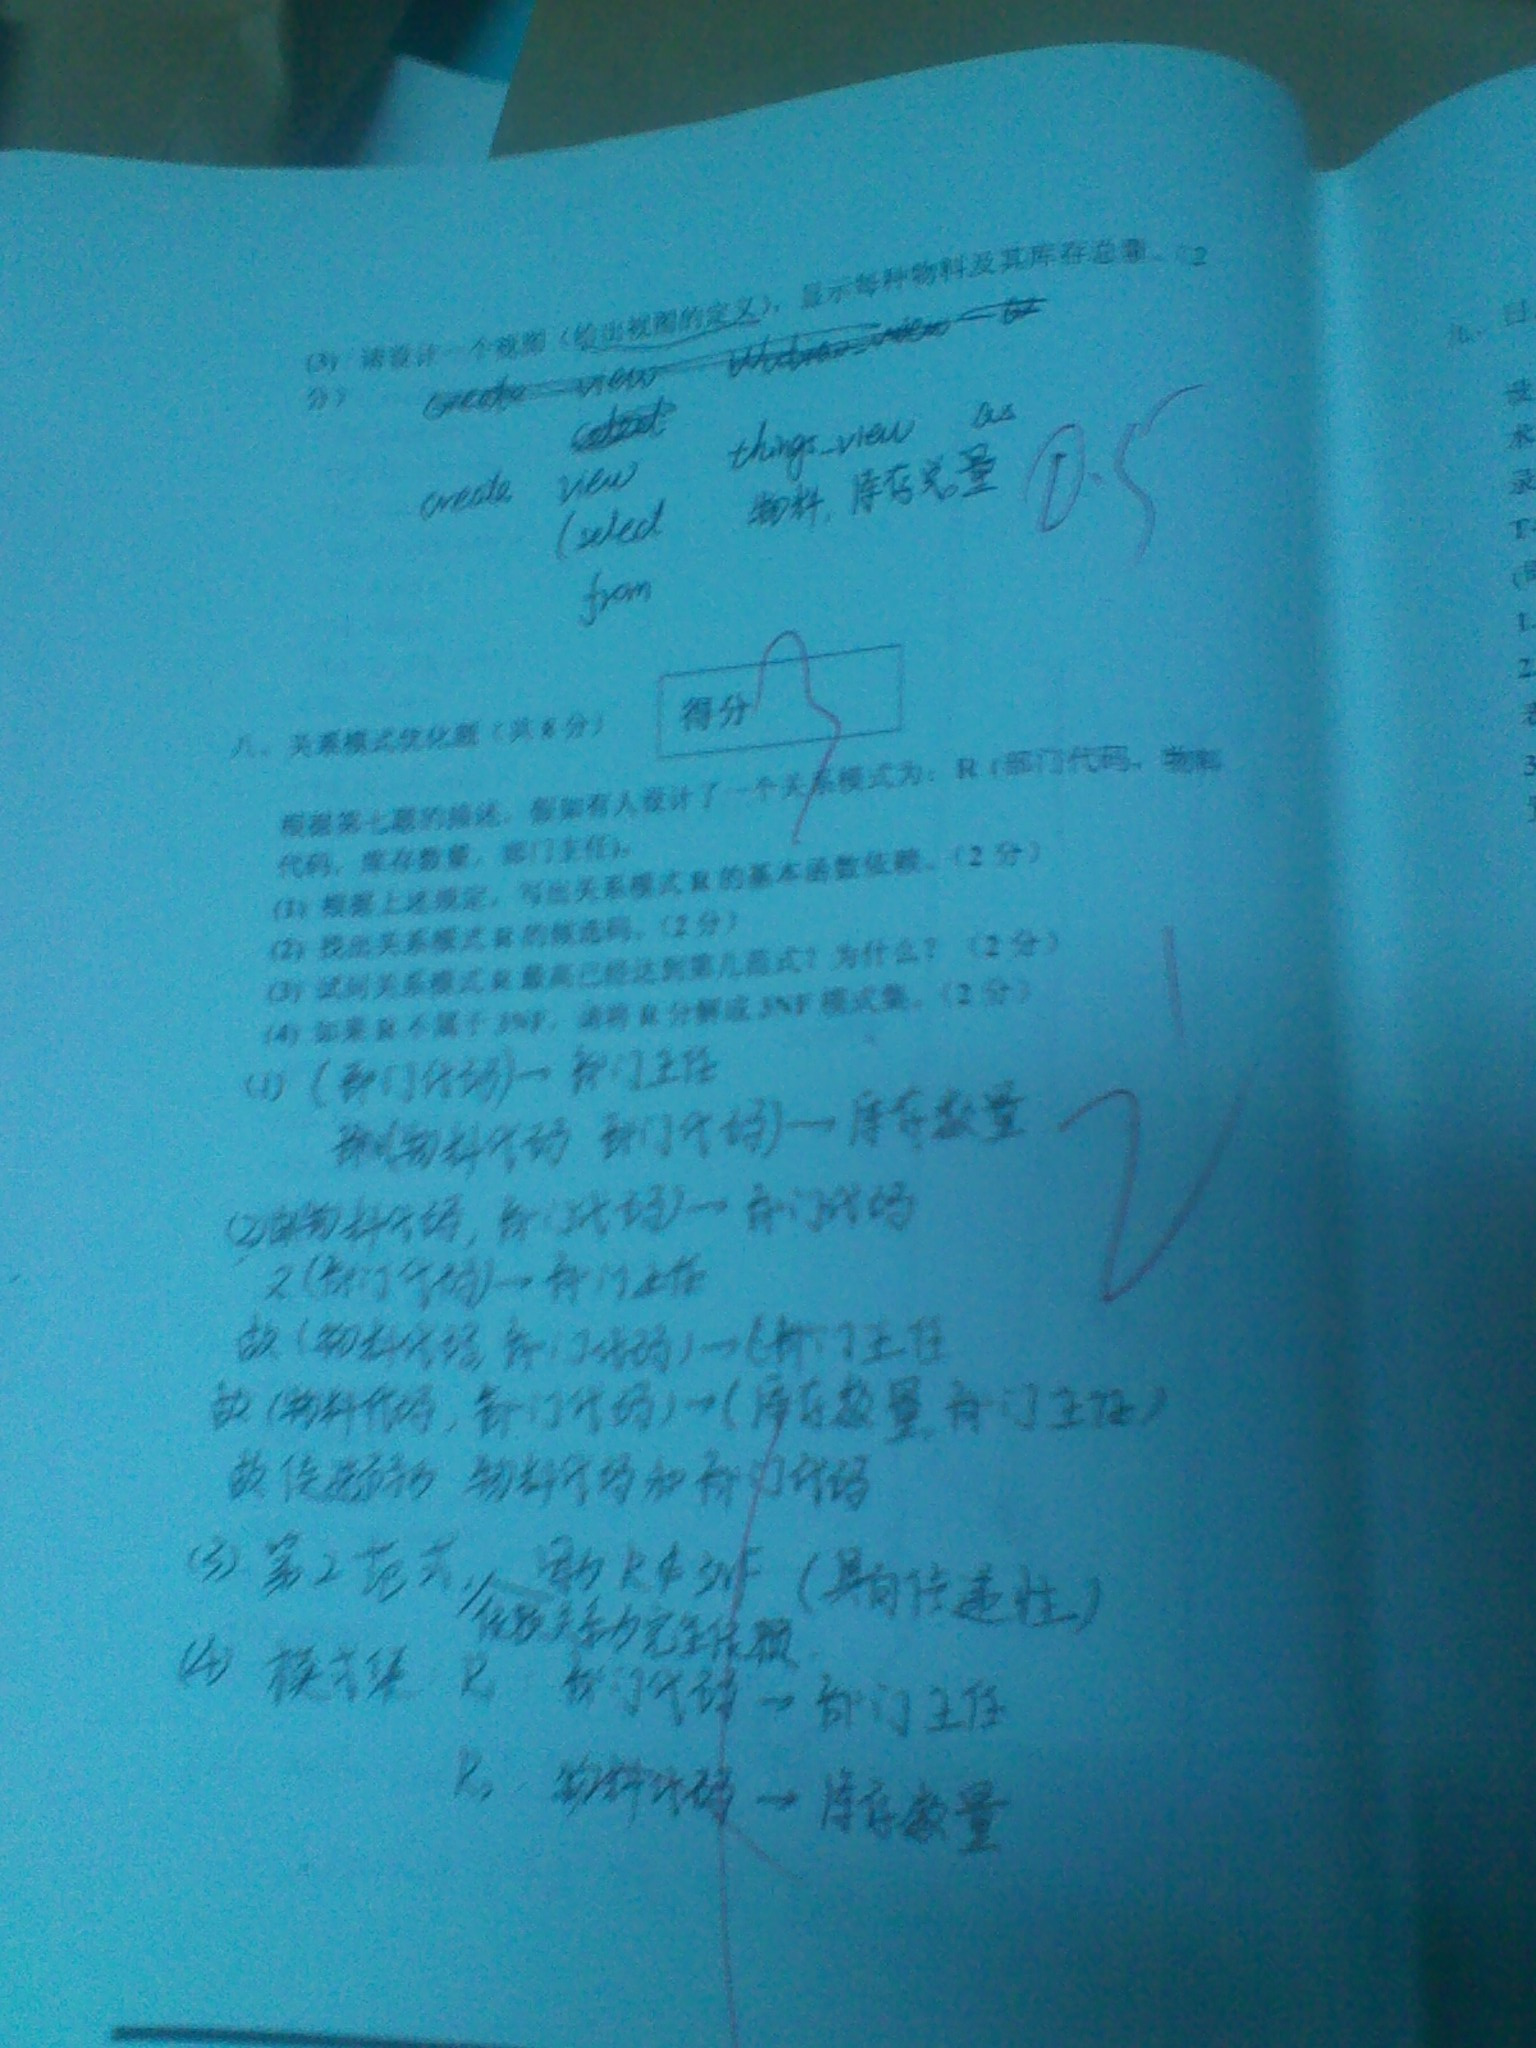 (3) 请设计一个视图（给出视图的定义），显示每种物料及其库存总量。（2
分）
create view as
create view things_view as
(select 物料, 库存总量
from
0.5
得分 3
八、关系模式优化题（共8分）
根据第七题的描述，假如有人设计了一个关系模式为：R（部门代码，物料
代码，库存数量，部门主任）。
(1) 根据上述规定，写出关系模式R的基本函数依赖。（2分）
(2) 找出关系模式R的候选码。（2分）
(3) 试问关系模式R最高已经达到第几范式？为什么？（2分）
(4) 如果R不属于3NF，请将R分解成3NF模式集。（2分）
(1) (部门代码)→部门主任
(物料代码 部门代码)→库存数量
(2) 物料代码, 部门代码)→部门代码
又(部门代码)→部门主任
故(物料代码, 部门代码)→(部门主任
故(物料代码, 部门代码)→(库存数量, 部门主任)
故 物料代码和部门代码
(3) 第2范式, R∉3NF (具有传递性)
依赖关系为完全依赖
(4) 模式集 R 部门代码→部门主任
R 物料代码→库存数量
1.
2.
3